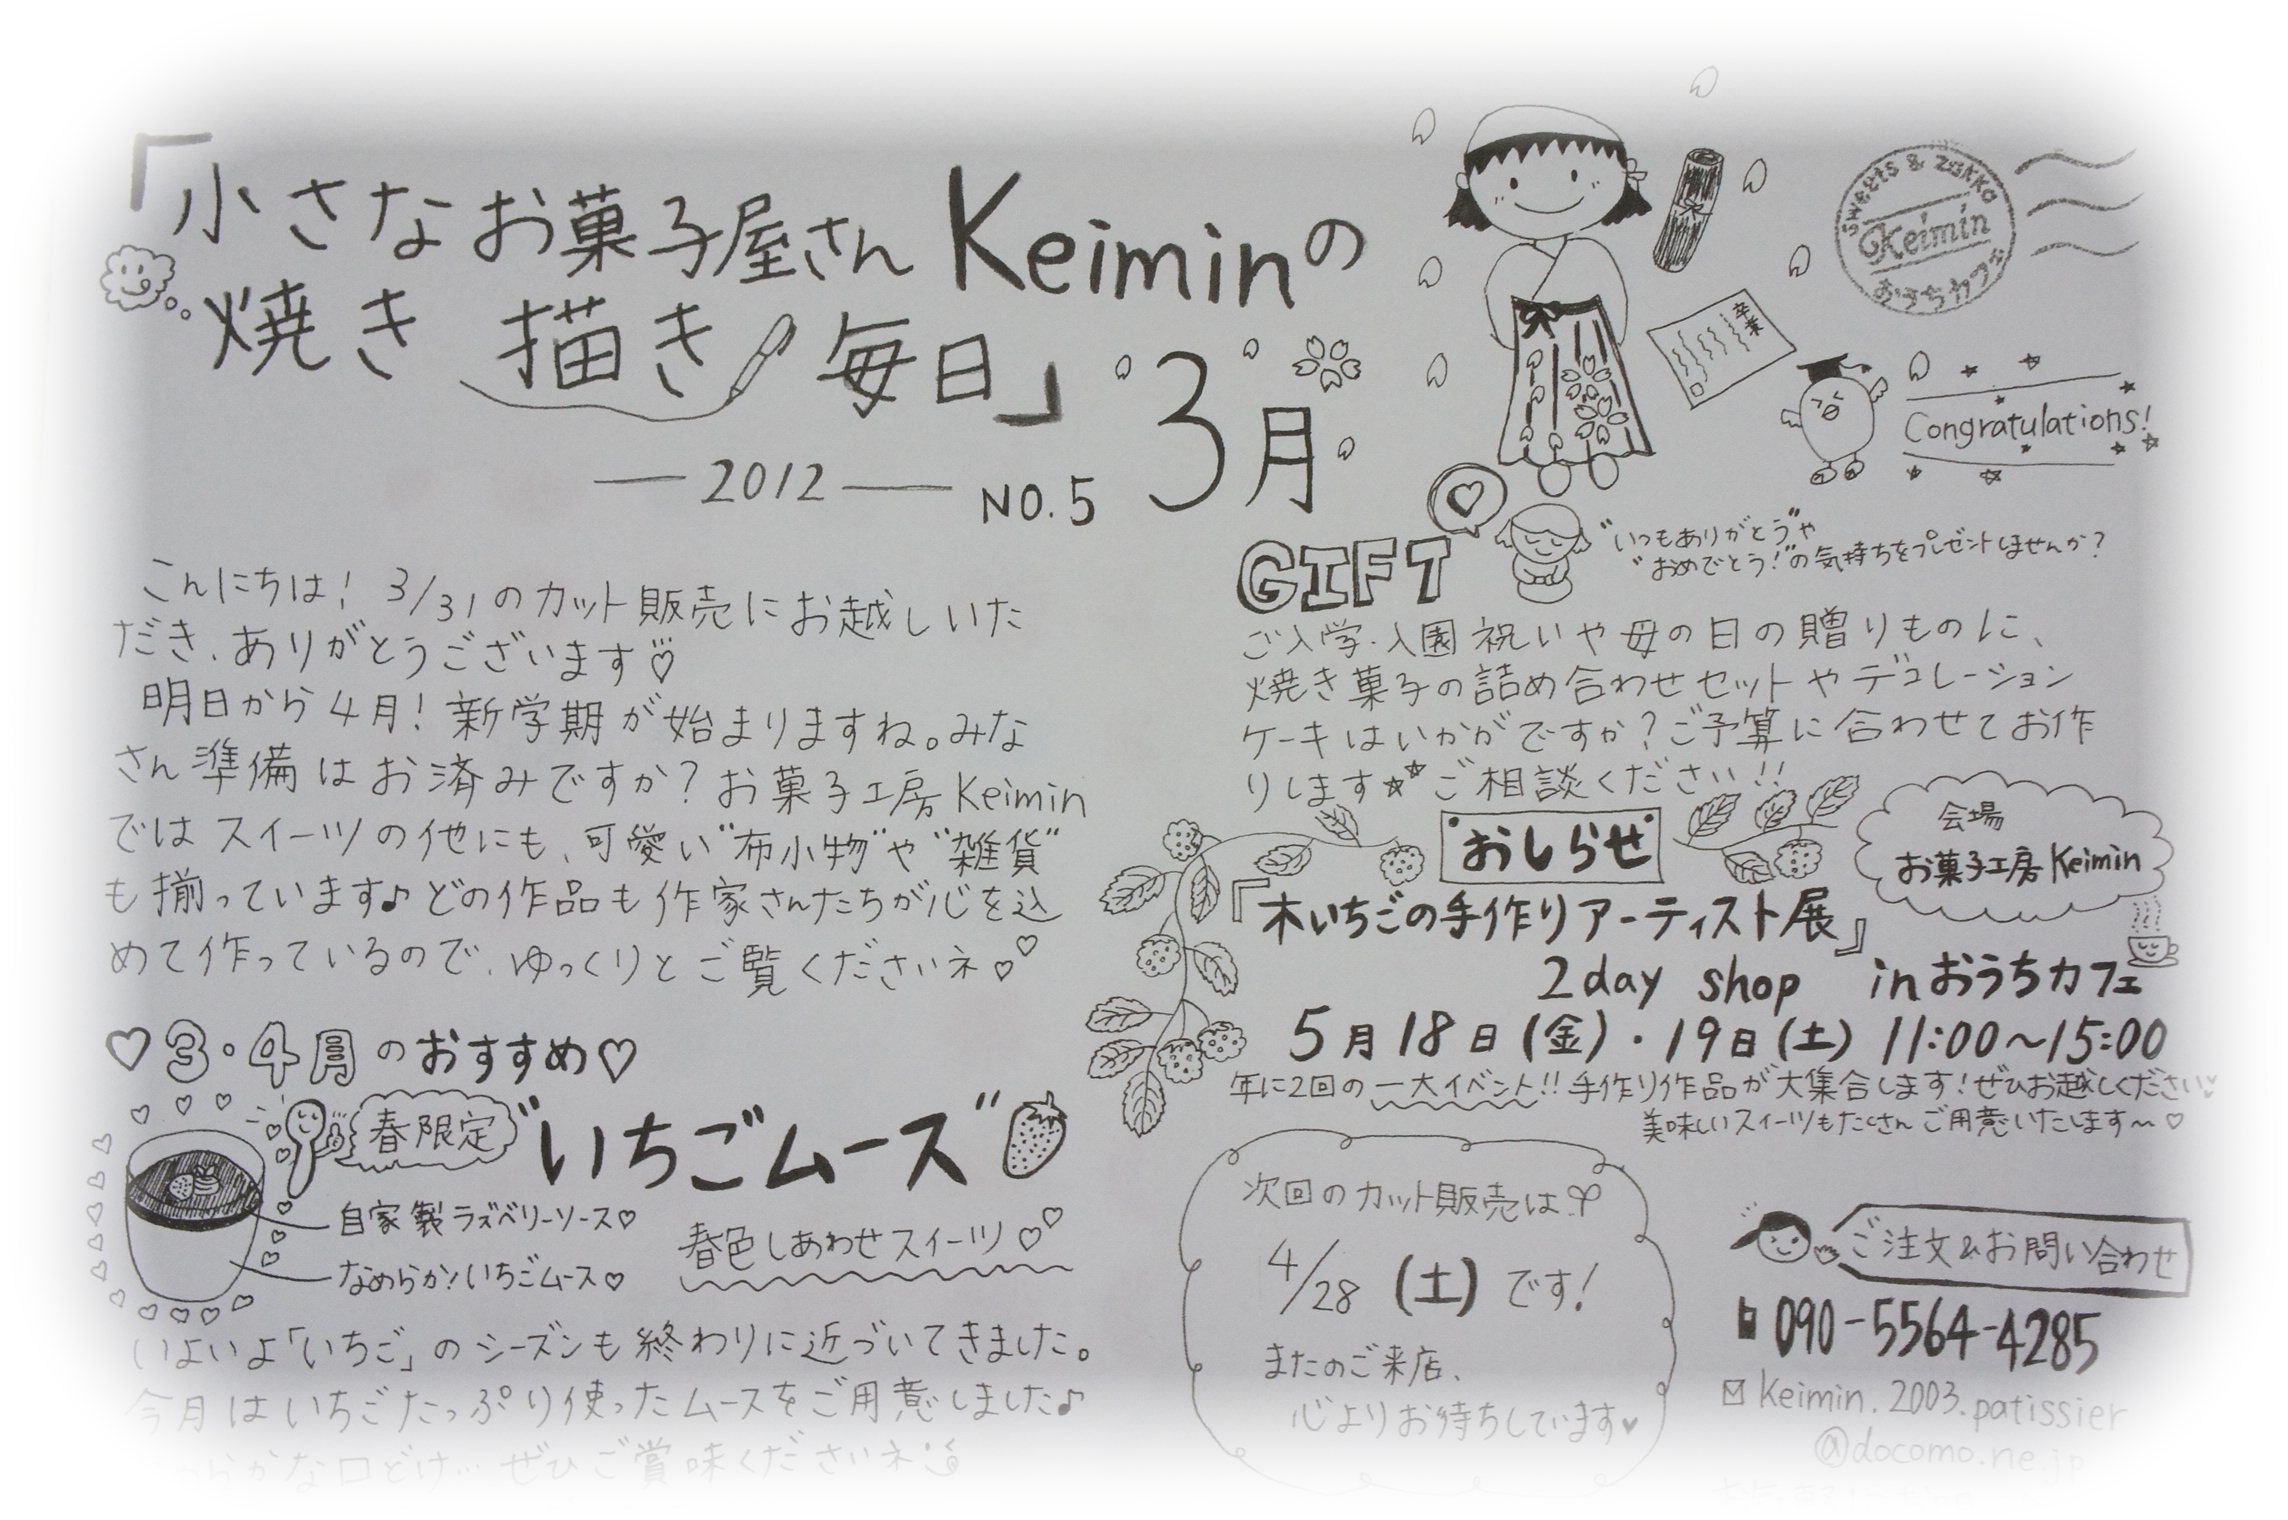 「小さなお菓子屋さんKeiminの
焼き 描き 毎日」
3月
—2012— NO.5
Sweets & Zakka
Keimin
おうちカフェ
卒業
Congratulations!
こんにちは! 3/31のカット販売にお越しいた
だき、ありがとうございます♡
明日から4月! 新学期が始まりますね。みな
さん準備はお済みですか? お菓子工房Keimin
ではスイーツの他にも、可愛い"布小物"や"雑貨"
も揃っています♪どの作品も作家さんたちが心を込
めて作っているので、ゆっくりとご覧くださいネ♡♡
♡3・4月のおすすめ♡
春限定
"いちごムース"
自家製ラズベリーソース♡
なめらか!いちごムース♡
春色しあわせスイーツ♡♡
いよいよ「いちご」のシーズンも終わりに近づいてきました。
今月はいちごたっぷり使ったムースをご用意しました♪
めらかな口どけ… ぜひご賞味くださいネ
GIFT
"いつもありがとう"や
"おめでとう!"の気持ちをプレゼントしませんか?
ご入学・入園祝いや母の日の贈りものに、
焼き菓子の詰め合わせセットやデコレーション
ケーキはいかがですか?ご予算に合わせてお作
りします★★ご相談ください!!
おしらせ
会場
お菓子工房Keimin
『木いちごの手作りアーティスト展』
2day shop inおうちカフェ
5月18日(金)・19日(土) 11:00〜15:00
年に2回の一大イベント!! 手作り作品が大集合します!ぜひお越しください♡
美味しいスイーツもたくさんご用意いたします〜♡
次回のカット販売は
4/28(土)です!
またのご来店、
心よりお待ちしています♥
ご注文&お問い合わせ
090-5564-4285
keimin.2003.patissier
@docomo.ne.jp